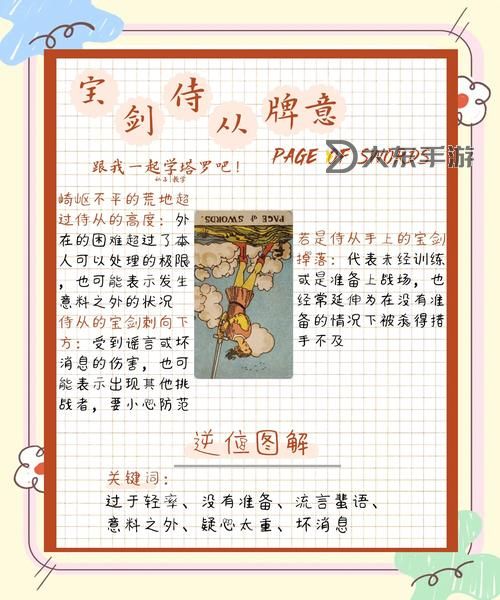 宝剑侍从牌意
PAGE OF SWORDS
大东手游
跟我一起学塔罗吧！
崎岖不平的荒地超
过侍从的高度：外
在的困难超过了本
人可以处理的极限
，也可能表示发生
意料之外的状况
侍从的宝剑刺向下
方：受到谣言或坏
消息的伤害，也可
能表示出现其他挑
战者，要小心防范
PAGE of SWORDS.
若是侍从手上的宝剑
掉落：代表未经训练
或是准备上战场，也
经常延伸为在没有准
备的情况下被杀得措
手不及
逆位图解
关键词：
过于轻率、没有准备、流言蜚语、
意料之外、疑心太重、坏消息